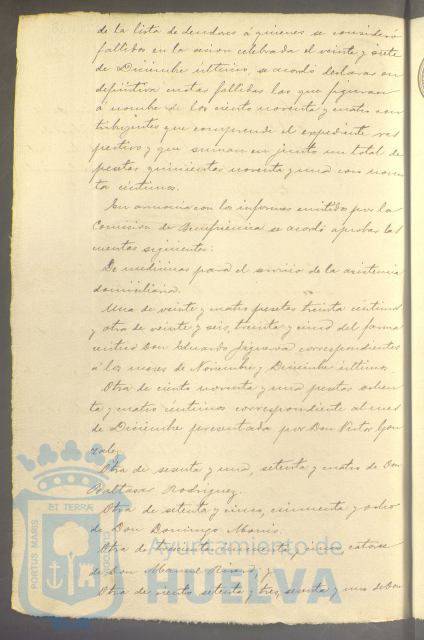 de la lista de deudores á quienes se consideró
fallidos en la sesion celebrada el veinte y siete
de Diciembre último, se acordó declarar en
definitiva cuotas fallidas las que figuran
á nombre de los ciento noventa y cuatro con
tribuyentes que comprende el expediente res
pectivo y que suman en junto un total de
pesetas quinientas noventa y una con noven
ta céntimos.
En armonía con los informes emitidos por la
Comisión de Beneficencia se acordó aprobar las
cuentas siguientes:
De medicinas para el servicio de la asistencia
domiciliaria.
Una de veinte y cuatro pesetas treinta céntimos
y otra de veinte y seis, treinta y cinco del farma
céutico Don Eduardo Figueroa correspondientes
á los meses de Noviembre y Diciembre últimos.
Otra de ciento noventa y una pesetas ochen
ta y cuatro céntimos correspondiente al mes
de Diciembre presentada por Don Victor Gon
zalez.
Otra de sesenta y una, setenta y cuatro de Don
Baltasar Rodriguez.
Otra de setenta y cinco, cincuenta y ocho
de Don Domingo
Otra de trescientas y cinco, catorce
de Don Manuel
Otra de ciento setenta y tres, sesenta y uno de Don
PORTUS MARIS ET TERRAE CUSTODIA
Ayuntamiento de
HUELVA